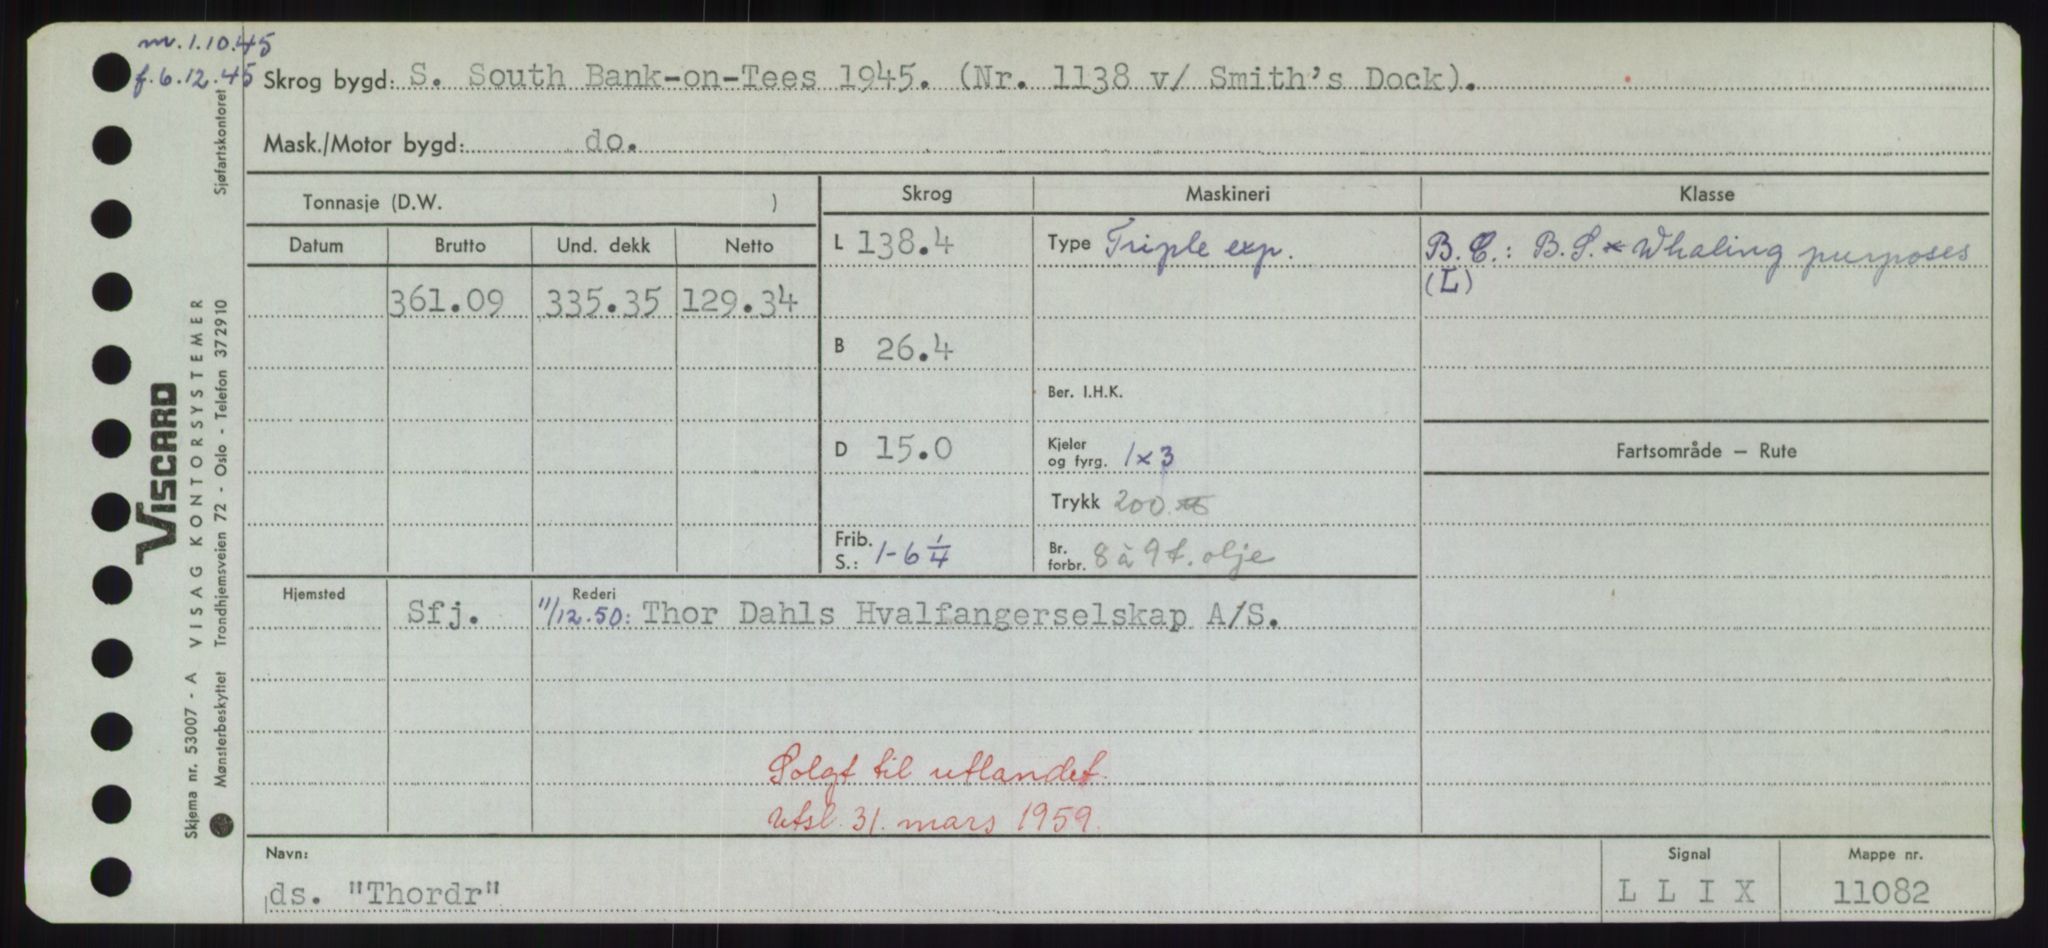 m. 1.10.45
f. 6.12.45
Skrog bygd: S. South Bank-on-Tees 1945. (Nr. 1138 v/ Smith's Dock).
Mask./Motor bygd: do.
Tonnasje (D.W. )
Skrog Maskineri Klasse
Datum Brutto Und. dekk Netto
L 138.4 Type Triple exp. B.C.: B.S.* Whaling purposes
(L)
361.09 335.35 129.34
B 26.4
Ber. I.H.K.
D 15.0 Kjeler og fyrg. 1x3
Fartsområde – Rute
Trykk 200 lb
Frib. S.: 1-6 1/4 Br. forbr. 8 à 9 t. olje
Hjemsted Rederi
Sfj. 11/12.50: Thor Dahls Hvalfangerselskap A/S.
Solgt til utlandet.
Utsl. 31. mars 1959.
Navn: Signal Mappe nr.
ds. "Thordr" L L I X 11082
Sjøfartskontoret
VISCARD
VISAG KONTORSYSTEMER
Skjema nr. 53007 - A
Mønsterbeskyttet Trondhjemsveien 72 - Oslo - Telefon 372910